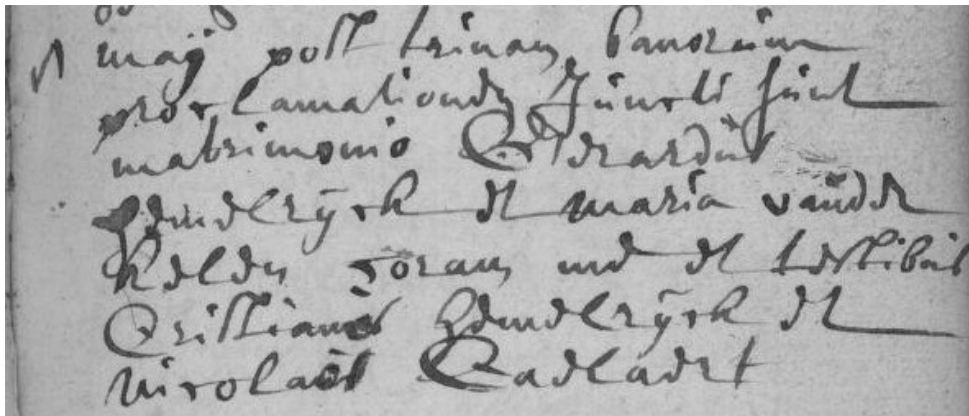 maÿ post trinam banorum
proclamationem Juncti sunt
matrimonio Gerardus
Hemelrÿck et maria vander
kelen coram me et testibus
Cristianus Hemelrÿck et
Nicolaus